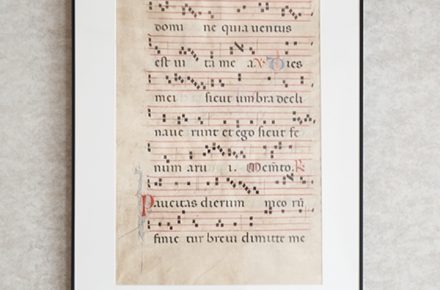 domi ne quia uentus
est ui ta me a. V. Dies
mei sicut umbra decli
naue runt et ego sicut fe
num aru i. Mem̄to. R
Paucitas dierum meo rū
finie tur breui dimitte me